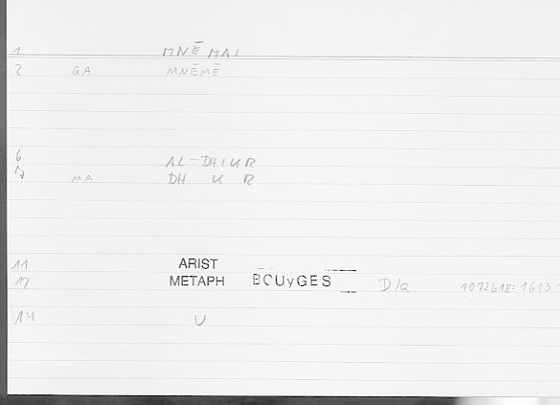 1 MNĒMAI
2 GA MNĒMĒ
6 AL-DHIKR
7 MA DH K R
11 ARIST
12 METAPH BOUyGES D/a 1072b18=1613
14 U